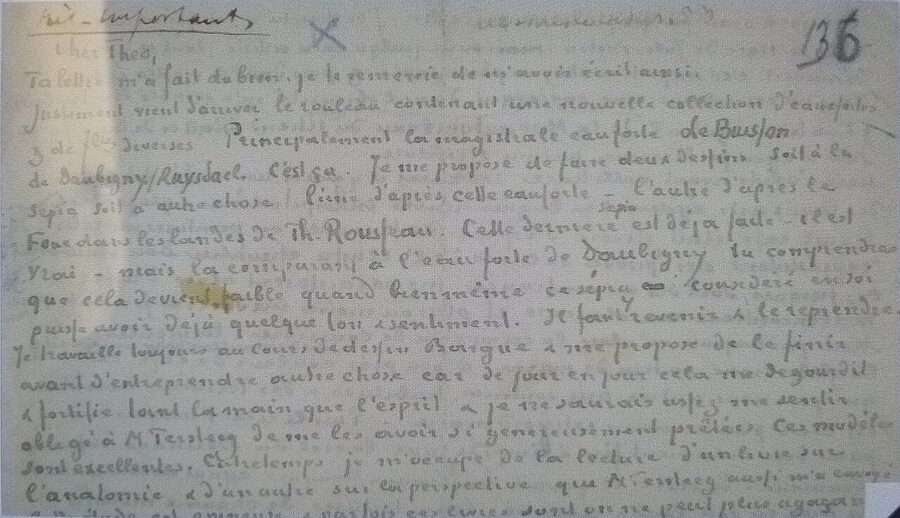 très-important
136
Cher Theo,
Ta lettre m'a fait du bien. je te remercie de m'avoir écrit ainsi.
Justement vient d'arriver le rouleau contenant une nouvelle collection d'eauxfortes
& de flles diverses Principalement la magistrale eauforte le Buisson
de Daubigny/Ruysdael. C'est ça. Je me propose de faire deux dessins soit à la
sepia soit à autre chose l'une d'après celle eauforte - l'autre d'après le
Four dans les landes de Th. Rousseau. Cette dernière sepia est déja faite - il est
vrai - mais la comparant à l'eau forte de Daubigny tu comprendras
que cela devient faible quand bien même la sépia consideré en soi
puisse avoir déjà quelque ton & sentiment. Il faut y revenir & le reprendre.
Je travaille toujours au Cours de dessin Bargue & me propose de le finir
avant d'entreprendre autre chose car de jour en jour cela me degourdit
& fortifie tant la main que l'esprit & je ne saurais assez me sentir
obligé à M Tersteeg de me les avoir si généreusement prêtées. Ces modèles
sont excellentes. Entretemps je m'occupe de la lecture d'un livre sur
l'anatomie & d'un autre sur la perspective que M Tersteeg aussi m'a envoyé
& parfois ces livres sont on ne peut plus agaçants